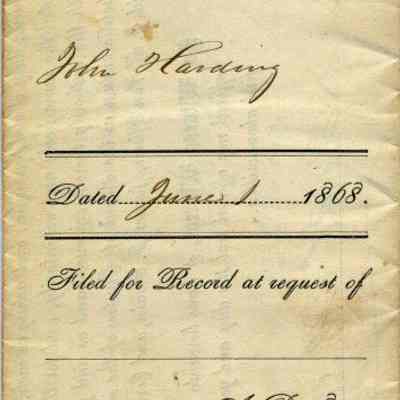 John Harding
Dated June 1 1868.
Filed for Record at request of